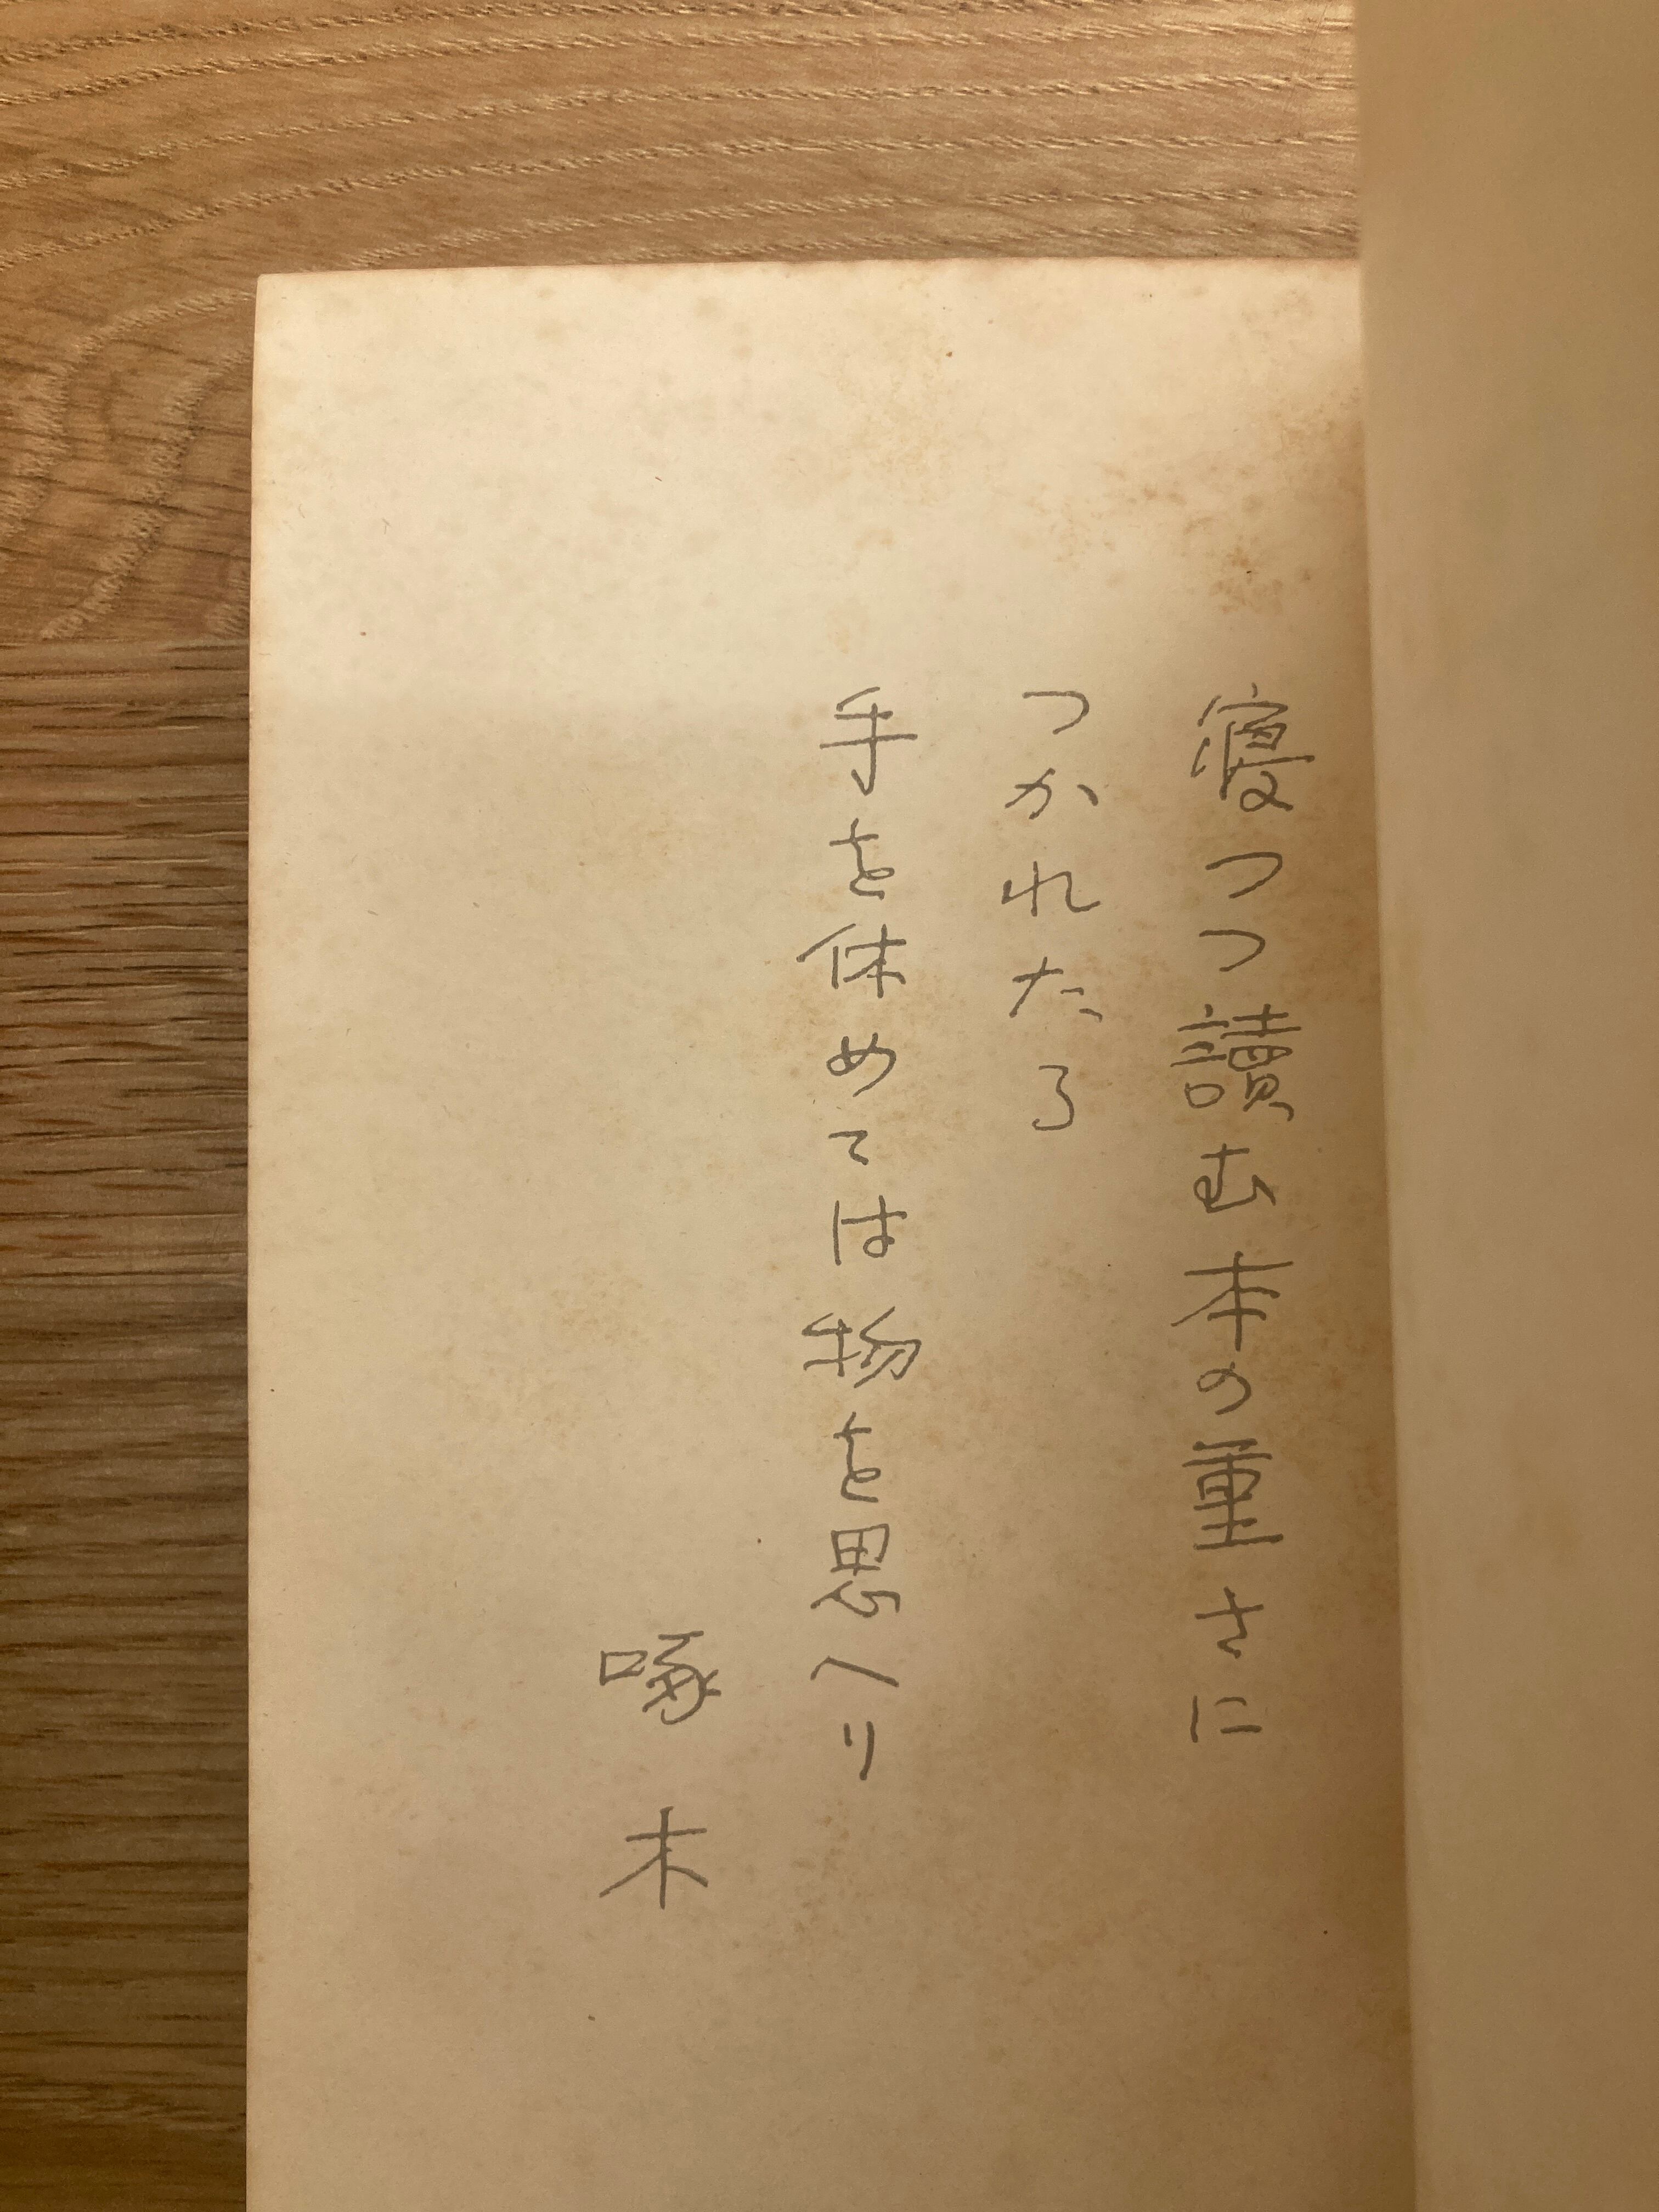 寝つつ讀む本の重さに
つかれたる
手を休めては物を思へり
啄木